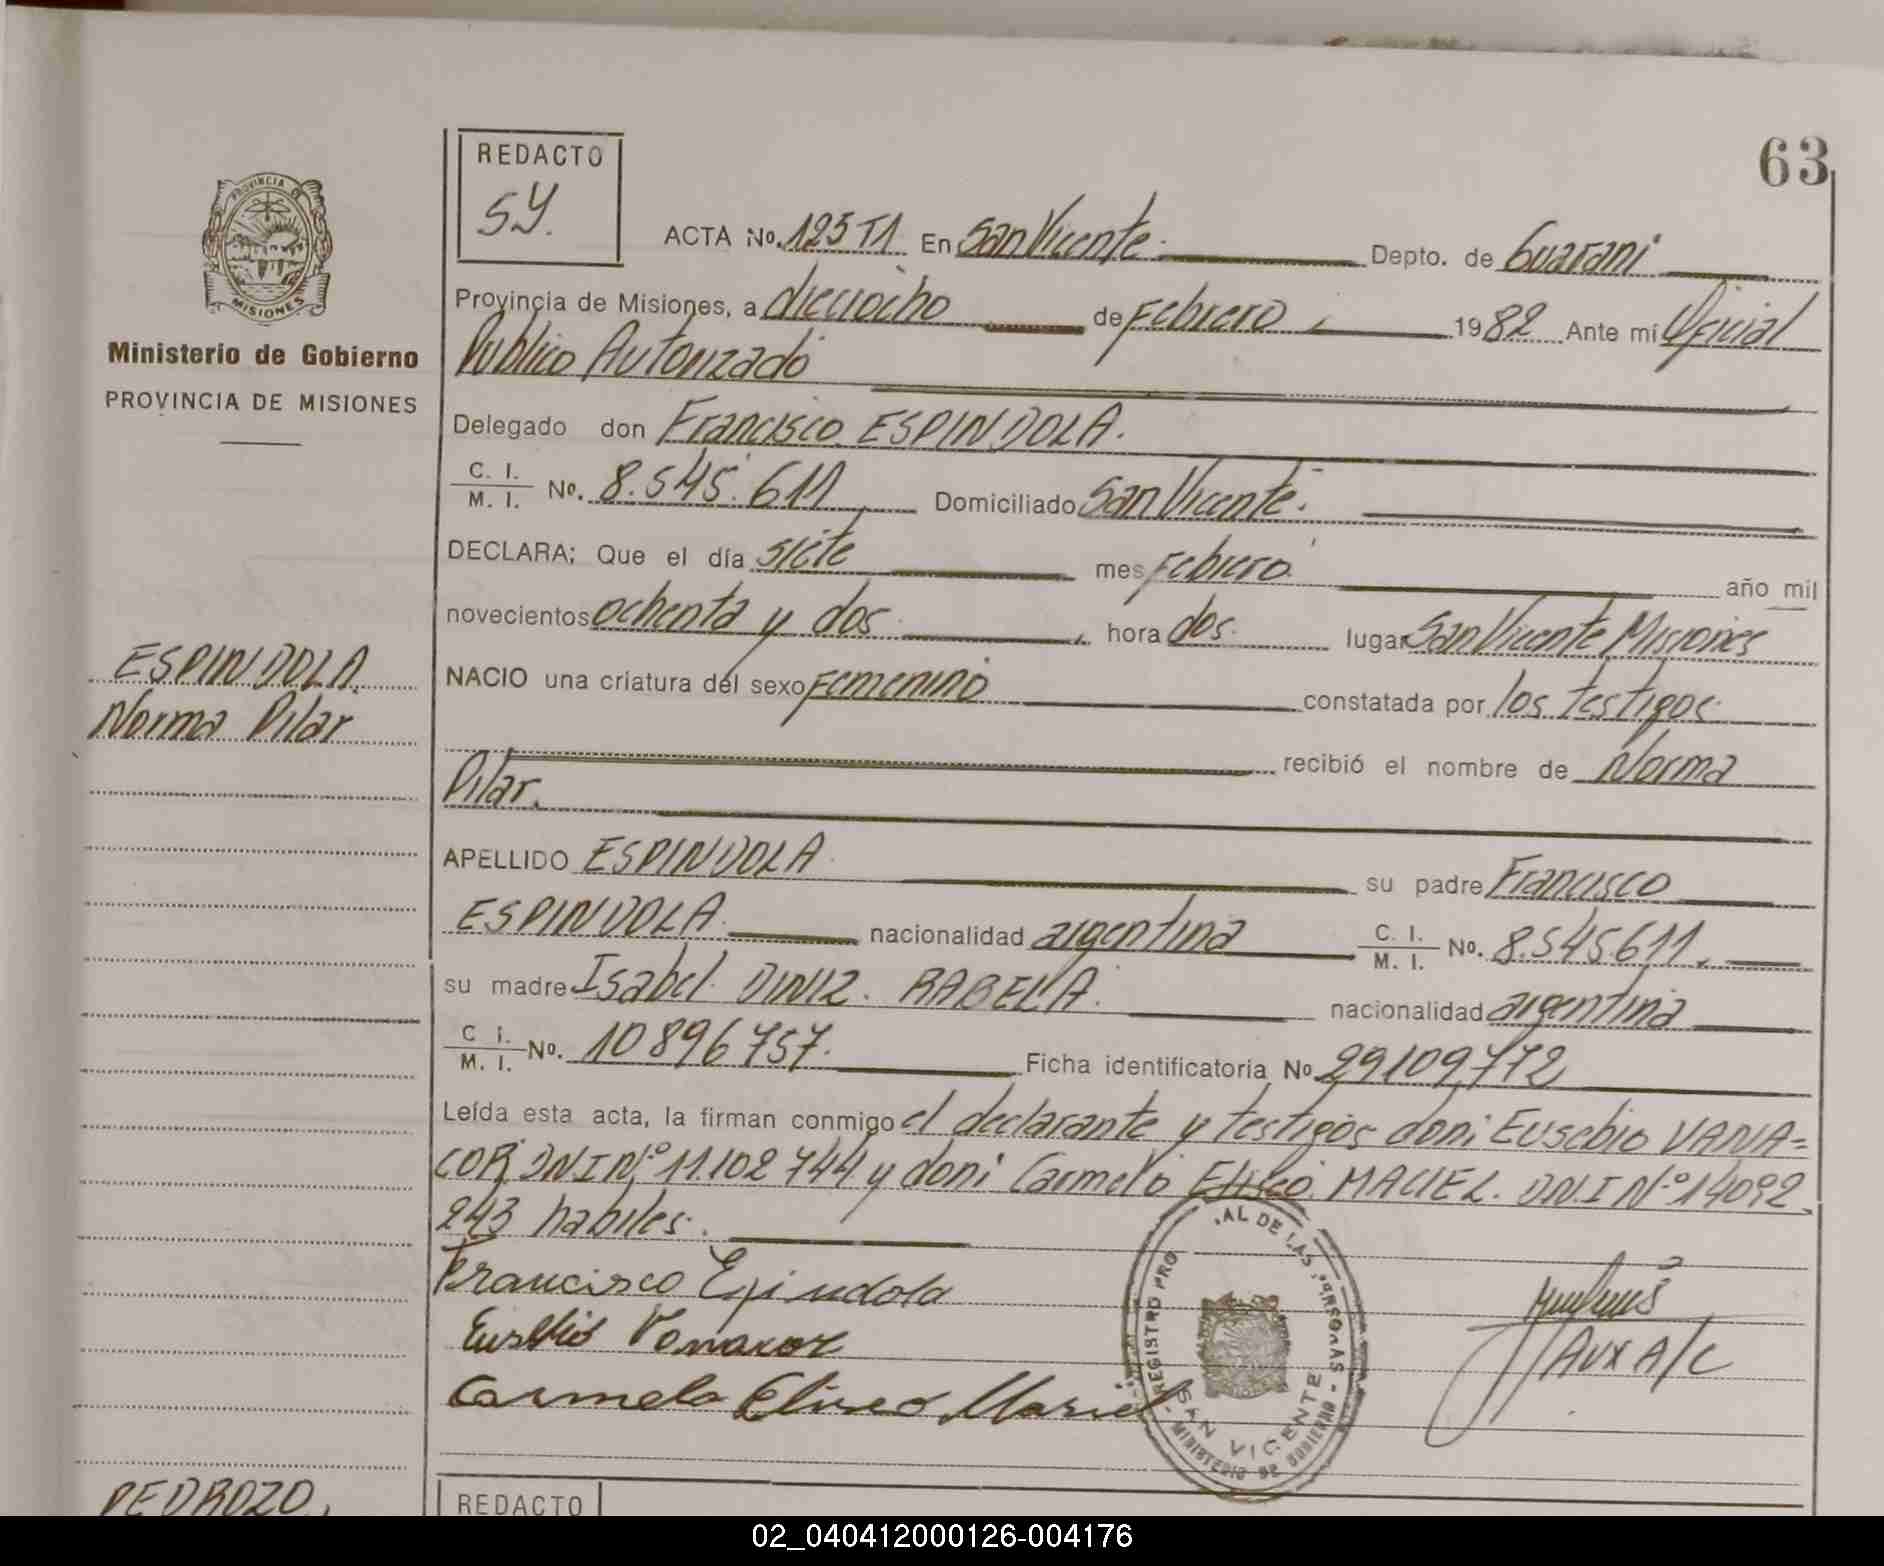 63
REDACTO
SY.
PROVINCIA DE
MISIONES
ACTA No. 125 T1 En San Vicente. Depto. de Guarani
Provincia de Misiones, a dieciocho de Febrero 1982 Ante mí Oficial
Publico Autorizado
Ministerio de Gobierno
PROVINCIA DE MISIONES
Delegado don Francisco ESPINDOLA.
C. I. / M. I. No. 8.545.611 Domiciliado San Vicente.
DECLARA; Que el día siete mes Febrero año mil
novecientos ochenta y dos hora dos. lugar San Vicente Misiones
ESPINDOLA
Norma Pilar
NACIO una criatura del sexo Femenino constatada por los testigos
recibió el nombre de Norma
Pilar.
APELLIDO ESPINDOLA su padre Francisco
ESPINDOLA nacionalidad argentina C. I. / M. I. No. 8.545.611.
su madre Isabel DINIZ RABELA. nacionalidad argentina
C I. / M. I. No. 10896757. Ficha identificatoria No 29109772
Leída esta acta, la firman conmigo el declarante y testigos don: Eusebio VANA=
COR DNI Nº 11.102 744 y don: Carmelo Eliseo MACIEL. DN.I Nº 14092
243 habiles.
Francisco Espindola
Eusebio Vanacor
Carmelo Eliseo Maciel
REGISTRO PRO AL DE LAS PERSONAS
SAN VICENTE
MINISTERIO DE GOBIERNO
AUX A/C
PEDROZO,
REDACTO
02_040412000126-004176